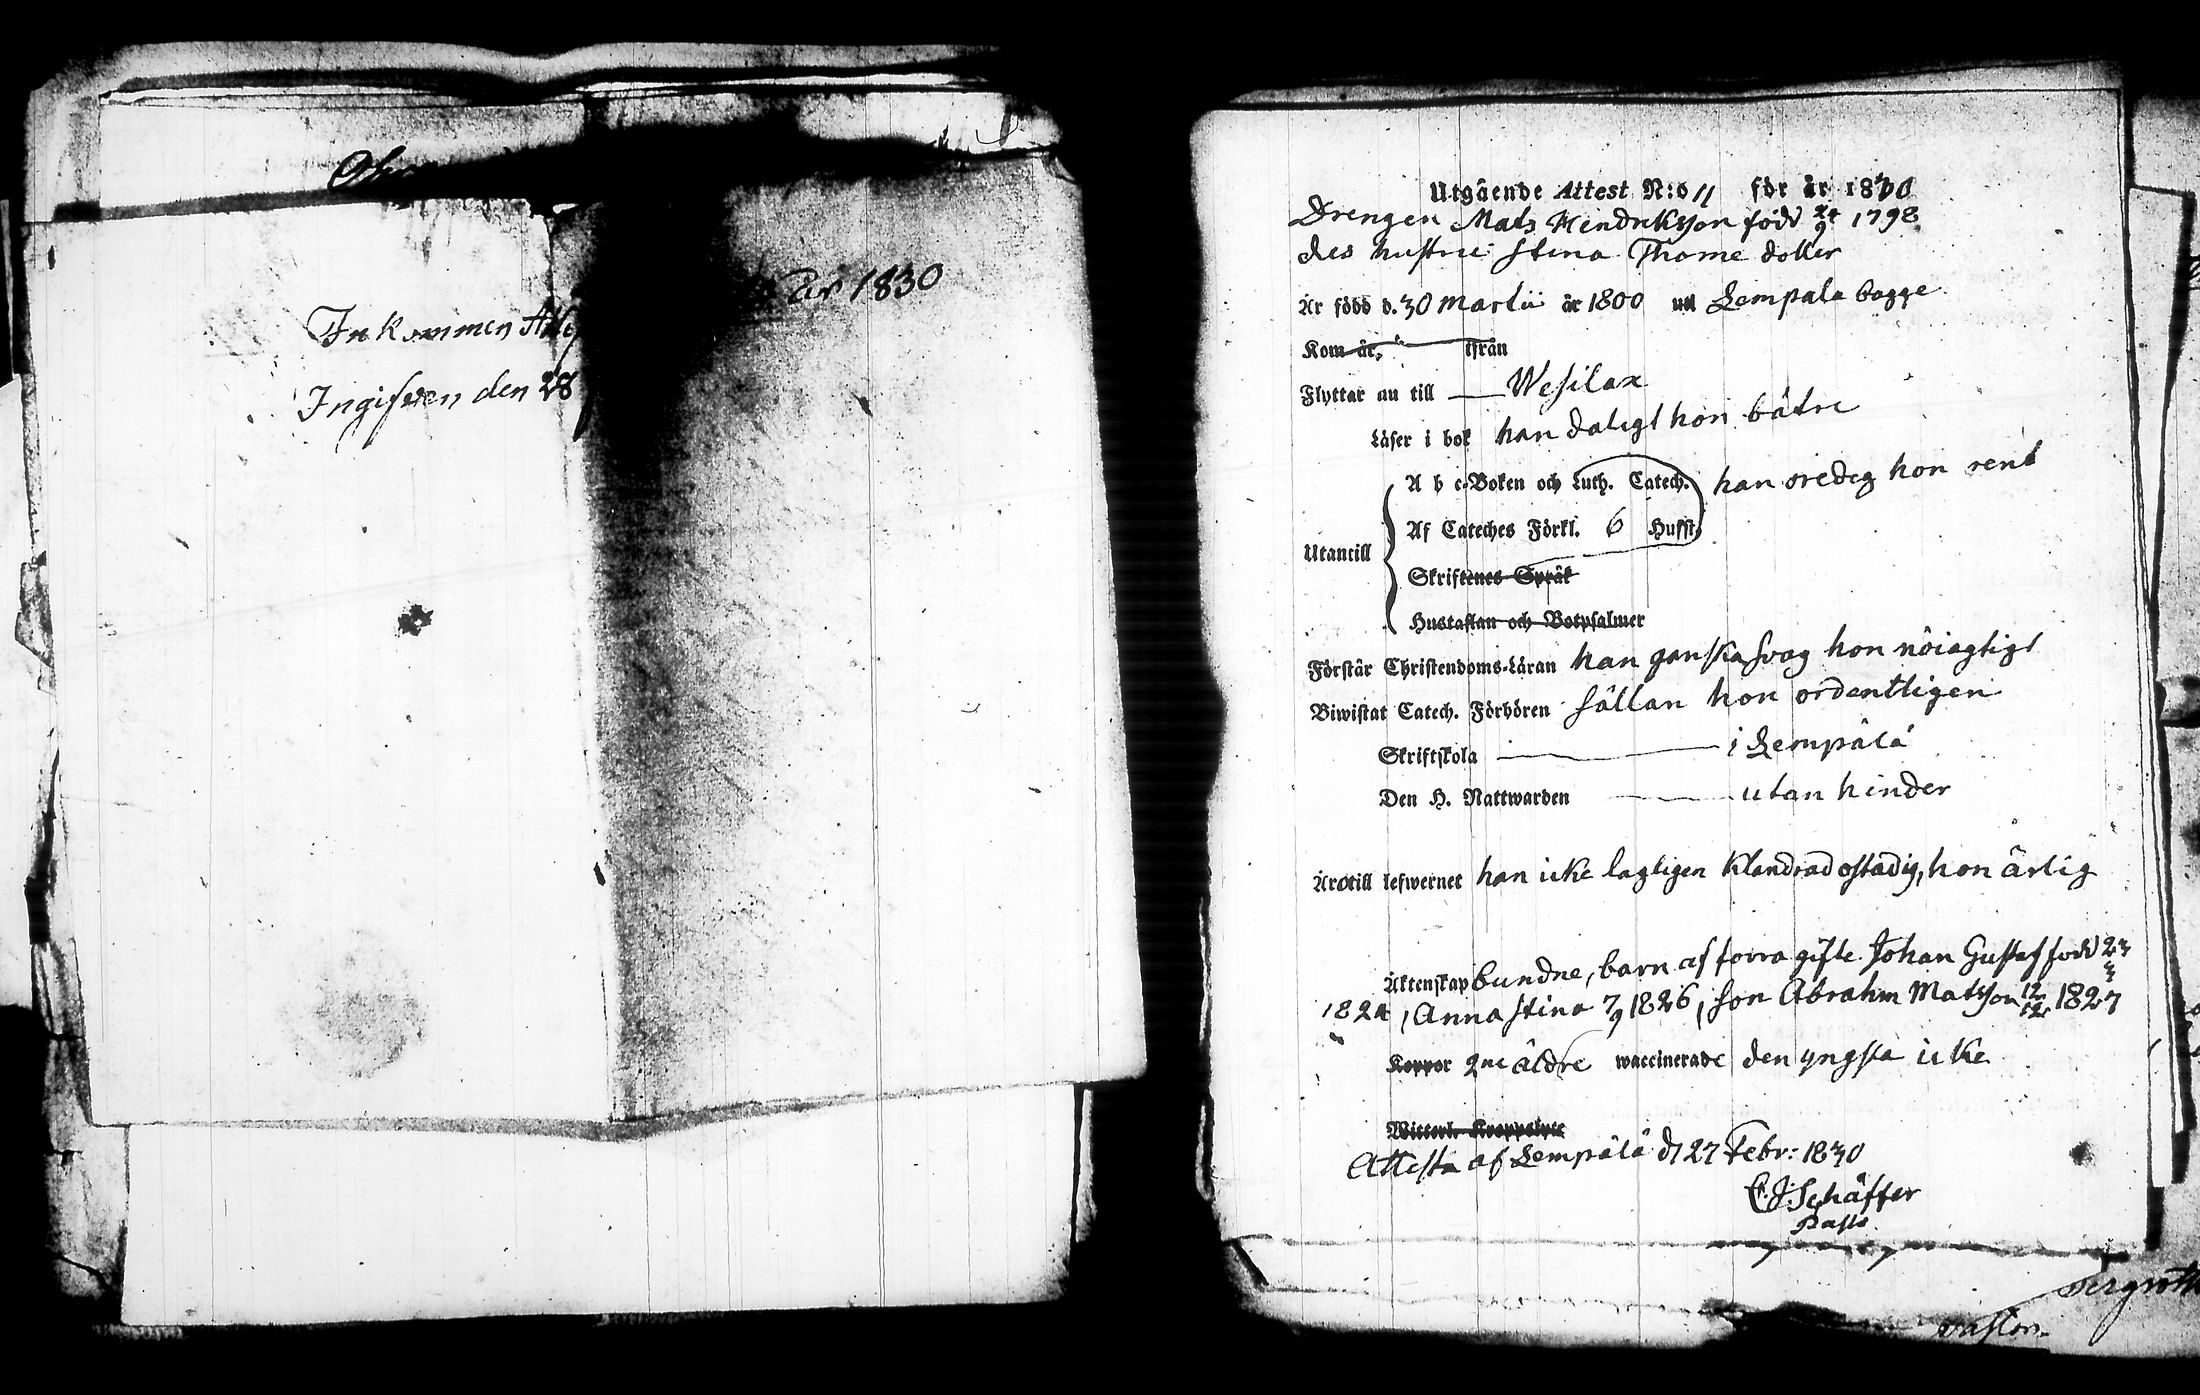 år 1830
Inkommen
Ingifven den 28
Utgående Attest N:o 11 för år 1830
Drengen Mats Hendriksson född 24/9 1798
des hustru Stina Thome dotter
Är född d. 30 Martii år 1800 uti Lempala bagge
Kom år, ifrån
Flyttar nu till Wesilax
Läser i bok han daligt hon bätre
A b c-Boken och Luth. Catech. han oredeg hon rent
Af Cateches Förkl. 6 Hufst.
Utantill
Skriftenes Språk
Hustaflan och Botpsalmer
Förstår Christendoms-Läran han ganska svag hon nöiagtigt
Biwistat Catech. Förhören sällan hon ordentligen
Skriftskola i Lempälä
Den H. Nattwarden utan hinder
Äro till lefwernet han icke lagligen klandrad ostadig, hon ärlig
Äktenskap bundne, barn af förra gifte Johan Gustaf född 23/3
1824, Anna Stina 7/9 1826, son Abraham Matsson 12/12 1827
Koppor 2ne äldre waccinerade den yngsta icke
Witterl. Kroppslyte
Attesta af Lempälä d 27 Febr: 1830
C. J. Schäffer
Past:
pastor.